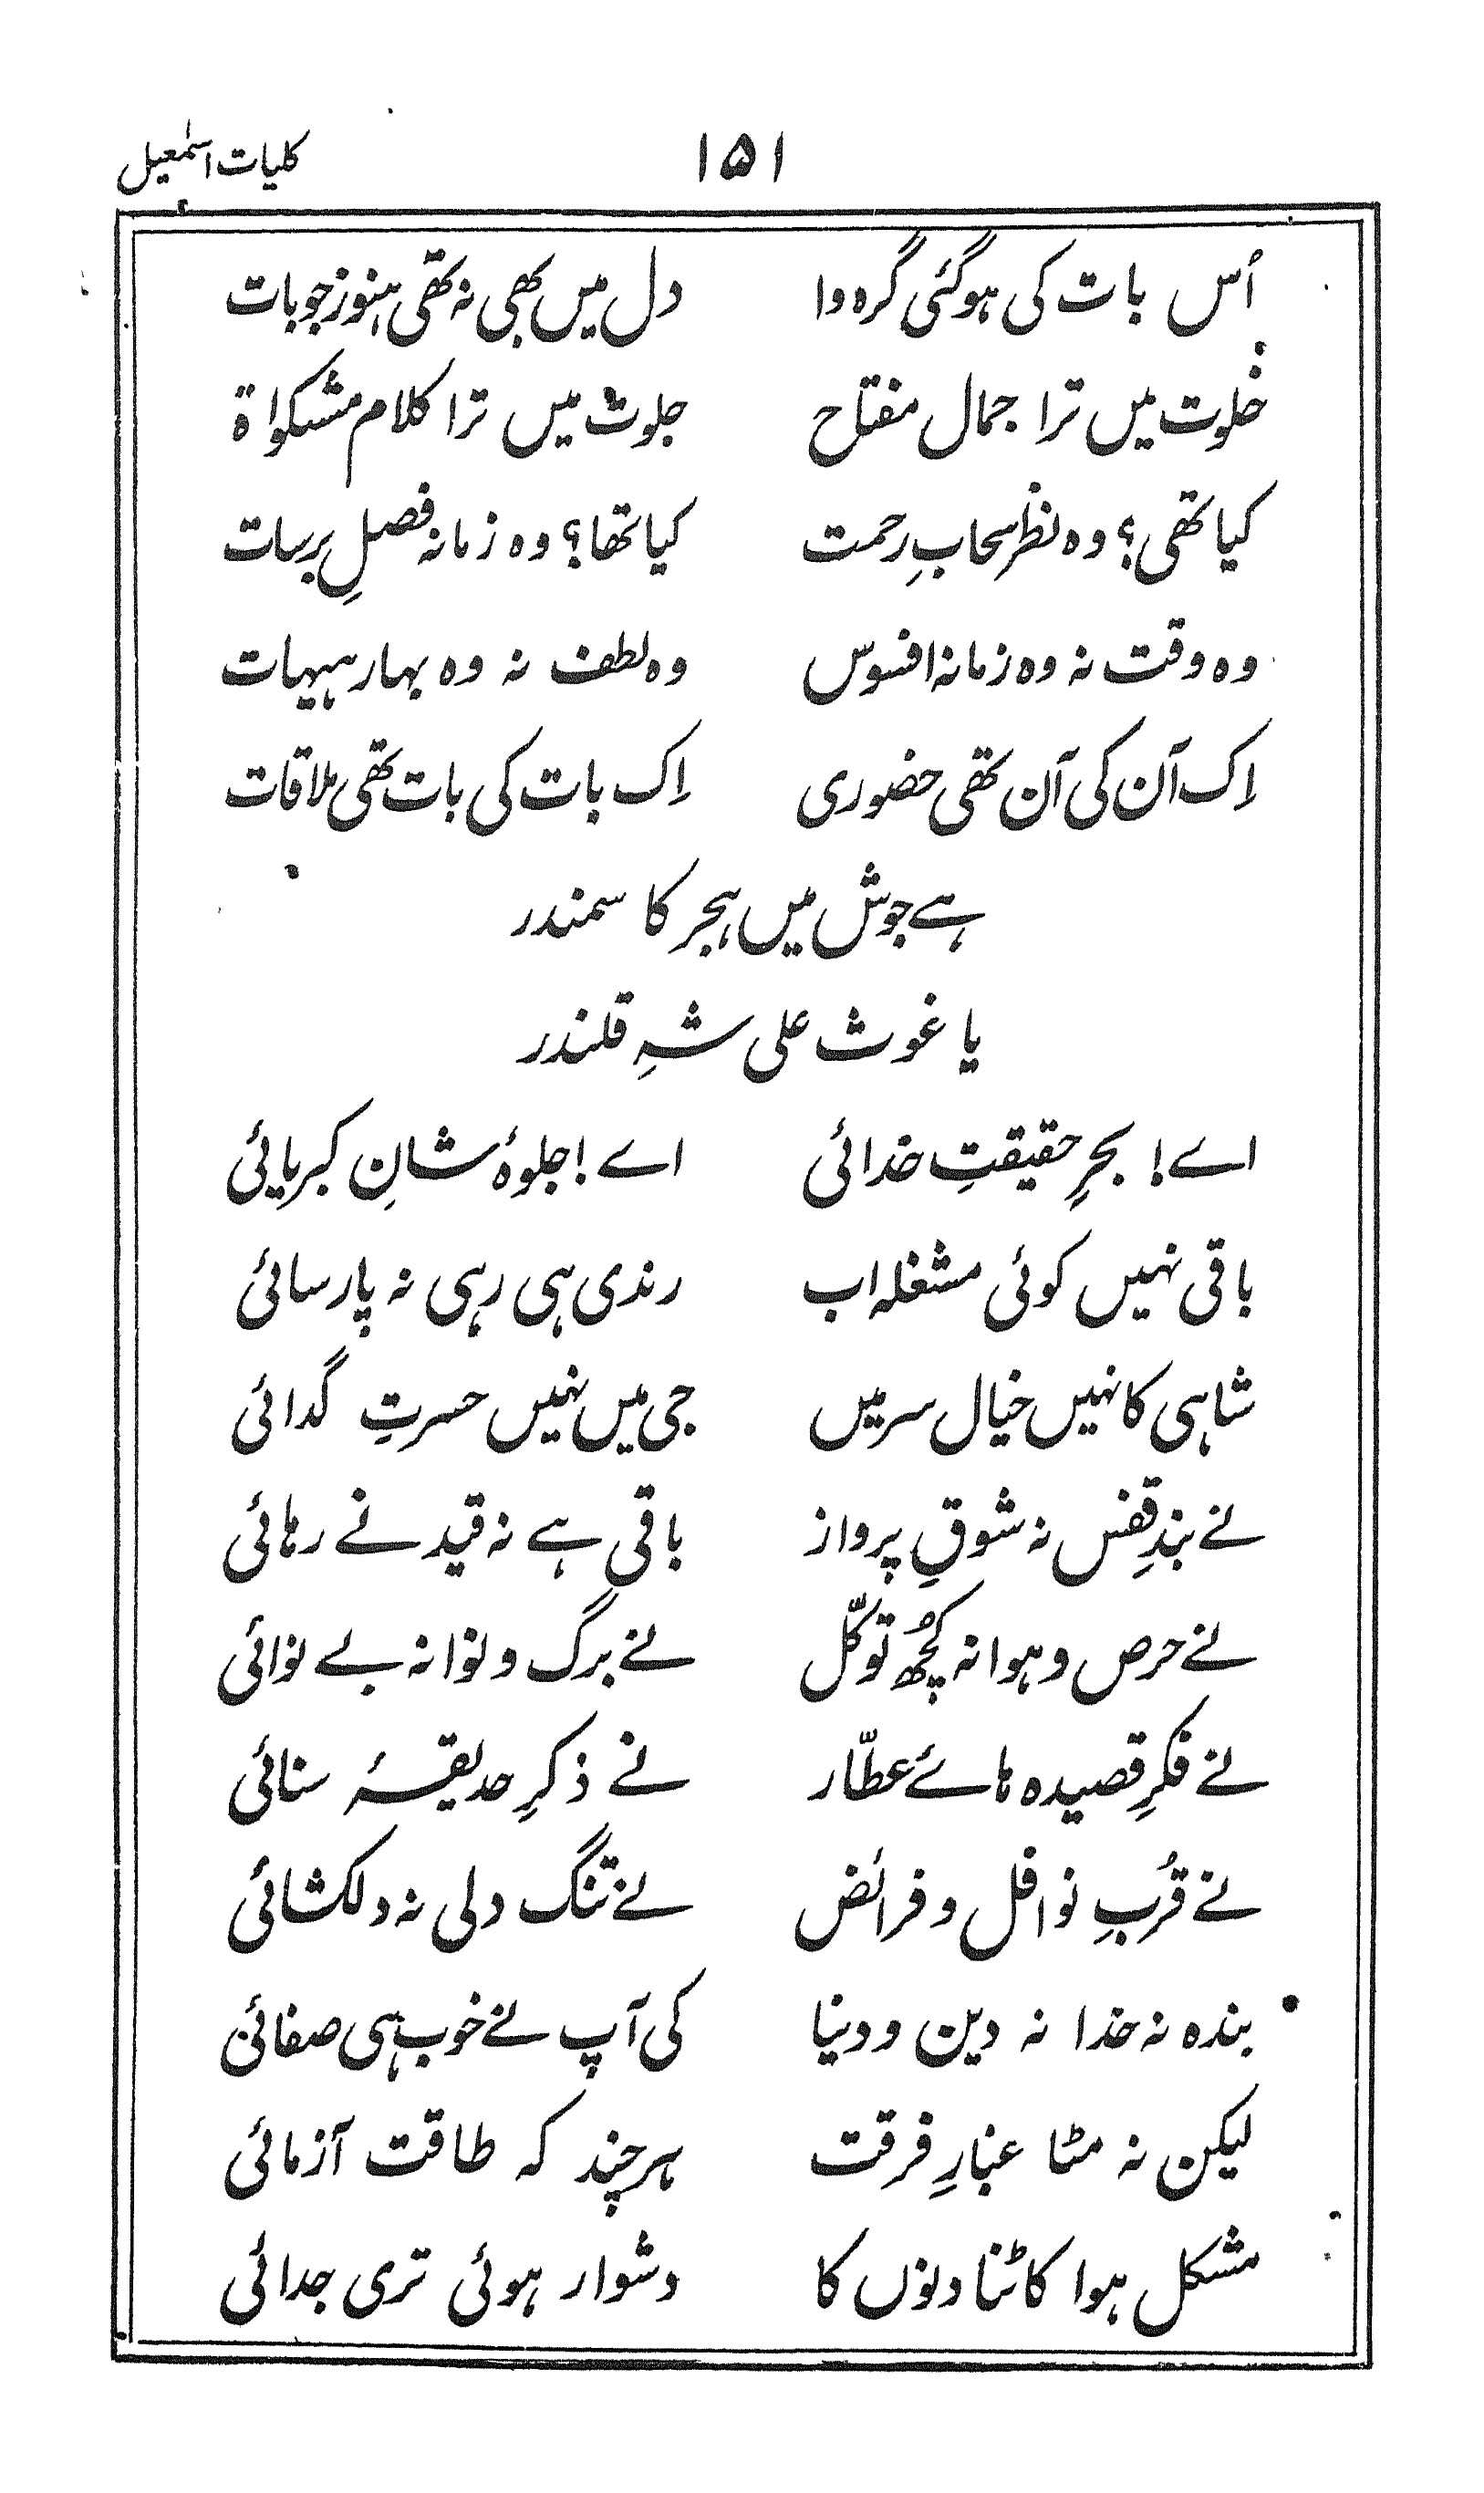 کلیات اسمٰعیل ۱۵۱
اُس بات کی ہوگئی گرہ وا دل میں بھی نہ تھی ہنوز جو بات
خلوت میں ترا جمال مفتاح جلوت میں ترا کلام مشکواۃ
کیا تھی؟ وہ نظر سحابِ رحمت کیا تھا؟ وہ زمانہ فصلِ برسات
وہ وقت نہ وہ زمانہ افسوس وہ لطف نہ وہ بہار ہیہات
اِک آن کی آن تھی حضوری اِک بات کی بات تھی ملاقات
ہے جوش میں ہجر کا سمندر
یا غوث علی شہِ قلندر
اے! بحرِ حقیقتِ خدائی اے! جلوۂ شانِ کبریائی
باقی نہیں کوئی مشغلہ اب رندی ہی رہی نہ پارسائی
شاہی کا نہیں خیال سر میں جی میں نہیں حسرتِ گدائی
نے بندِ قفس نہ شوقِ پرواز باقی ہے نہ قید نے رہائی
نے حرص و ہوا نہ کچُھ توکّل نے برگ و نوا نہ بے نوائی
نے فکرِ قصیدہ ہائے عطّار نے ذکرِ حدیقۂ سنائی
نے قرُبِ نوافل و فرائض نے تنگ دلی نہ دلکشائی
بندہ نہ خدا نہ دین و دنیا کی آپ نے خوب ہی صفائی
لیکن نہ مٹا غبارِ فرقت ہر چند کہ طاقت آزمائی
مشکل ہوا کاٹنا دنوں کا دشوار ہوئی تری جدائی